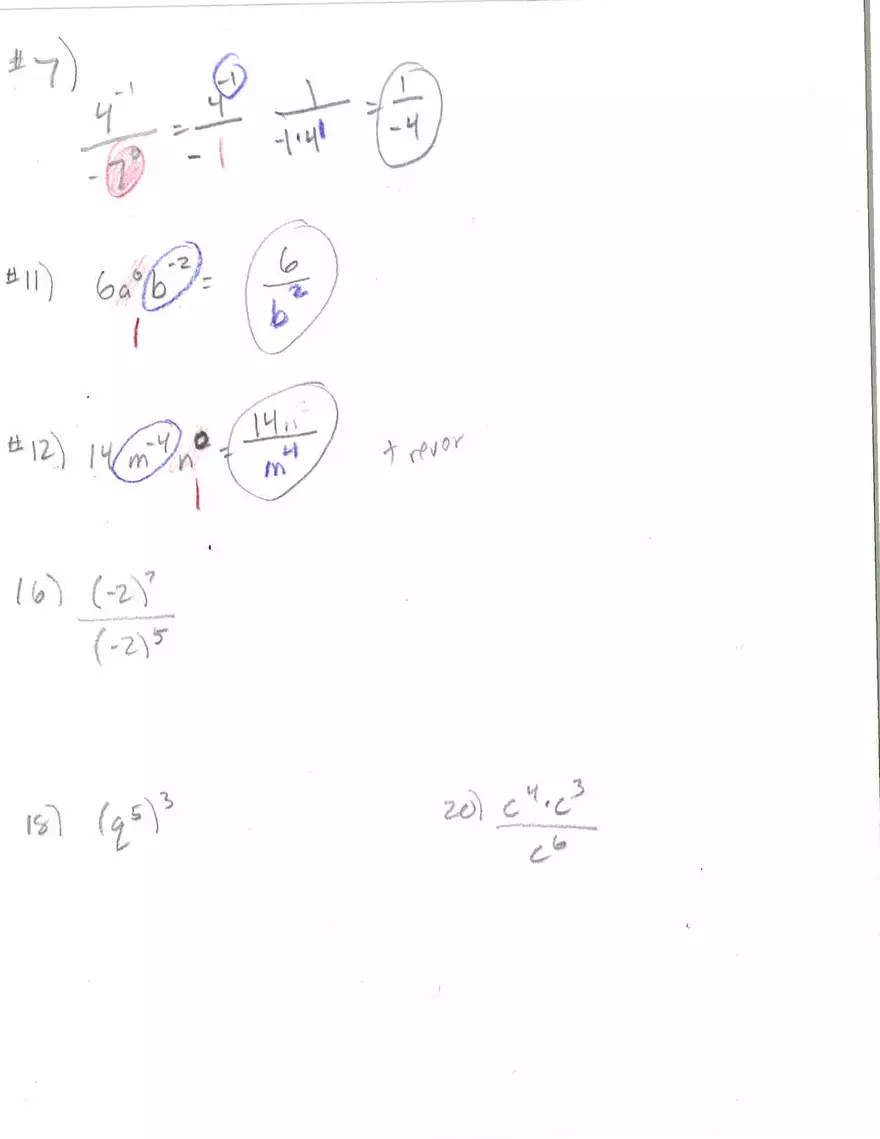 #7)
4⁻¹/-7⁰ = 4⁻¹/-1 1/-1·4¹ = 1/-4
#11) 6a⁰b⁻² = 6/b²
1
#12) 14m⁻⁴n⁰ = 14/m⁴ trevor
1
16) (-2)⁷/(-2)⁵
18) (q⁵)³ 20) c⁴·c³/c⁶